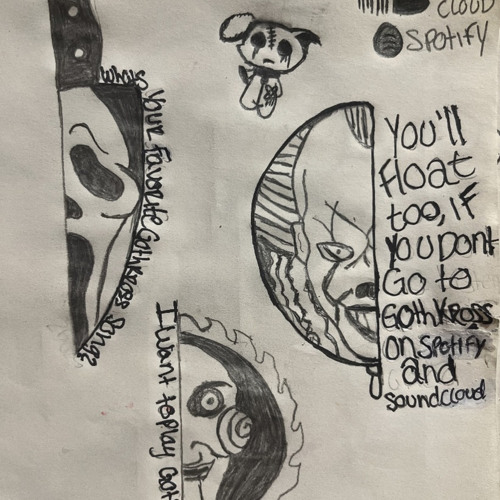 CLOUD
SPOTIFY
Whats Your Favorite GothKross Songs
You'll
Float
too, IF
you Dont
Go to
GothKross
on SPOTIFY
and
soundcloud
I want to play Got